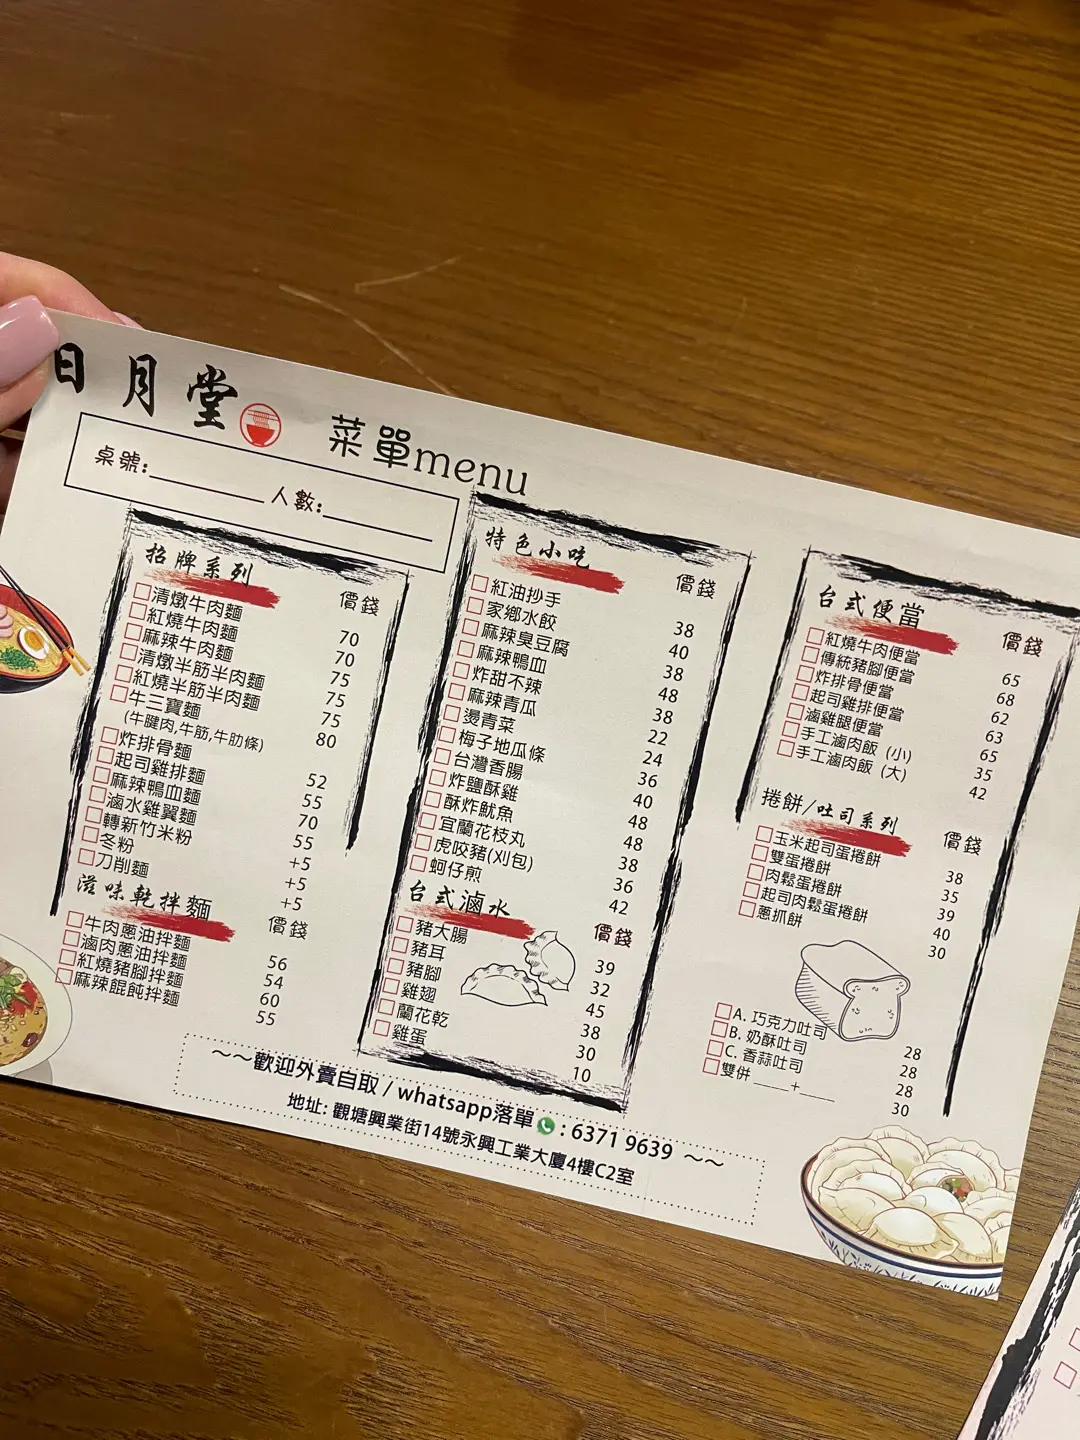 日月堂
菜單menu
桌號:__________ 人數:_______
招牌系列 價錢
清燉牛肉麵 70
紅燒牛肉麵 70
麻辣牛肉麵 75
清燉半筋半肉麵 75
紅燒半筋半肉麵 75
牛三寶麵 80
(牛腱肉,牛筋,牛肋條)
炸排骨麵 52
起司雞排麵 55
麻辣鴨血麵 70
滷水雞翼麵 55
轉新竹米粉 +5
冬粉 +5
刀削麵 +5
滋味乾拌麵 價錢
牛肉蔥油拌麵 56
滷肉蔥油拌麵 54
紅燒豬腳拌麵 60
麻辣餛飩拌麵 55
特色小吃 價錢
紅油抄手 38
家鄉水餃 40
麻辣臭豆腐 38
麻辣鴨血 48
炸甜不辣 38
麻辣青瓜 22
燙青菜 24
梅子地瓜條 36
台灣香腸 40
炸鹽酥雞 48
酥炸魷魚 48
宜蘭花枝丸 38
虎咬豬(刈包) 36
蚵仔煎 42
台式滷水 價錢
豬大腸 39
豬耳 32
豬腳 45
雞翅 38
蘭花乾 30
雞蛋 10
台式便當 價錢
紅燒牛肉便當 65
傳統豬腳便當 68
炸排骨便當 62
起司雞排便當 63
滷雞腿便當 65
手工滷肉飯 (小) 35
手工滷肉飯 (大) 42
捲餅/吐司系列 價錢
玉米起司蛋捲餅 38
雙蛋捲餅 35
肉鬆蛋捲餅 39
起司肉鬆蛋捲餅 40
蔥抓餅 30
A. 巧克力吐司 28
B. 奶酥吐司 28
C. 香蒜吐司 28
雙併 ____+____ 30
~~歡迎外賣自取 / whatsapp落單 : 6371 9639 ~~
地址: 觀塘興業街14號永興工業大廈4樓C2室